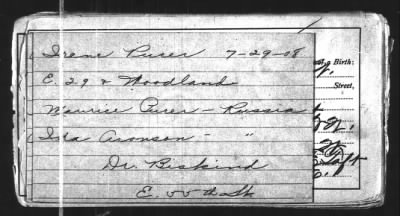 Irene Purer 7-29-08
E. 29 & Woodland
Maurice Purer - Russia
Ida Aronson - "
Dr. Biskind
E. 55th St
Birth:
Street,